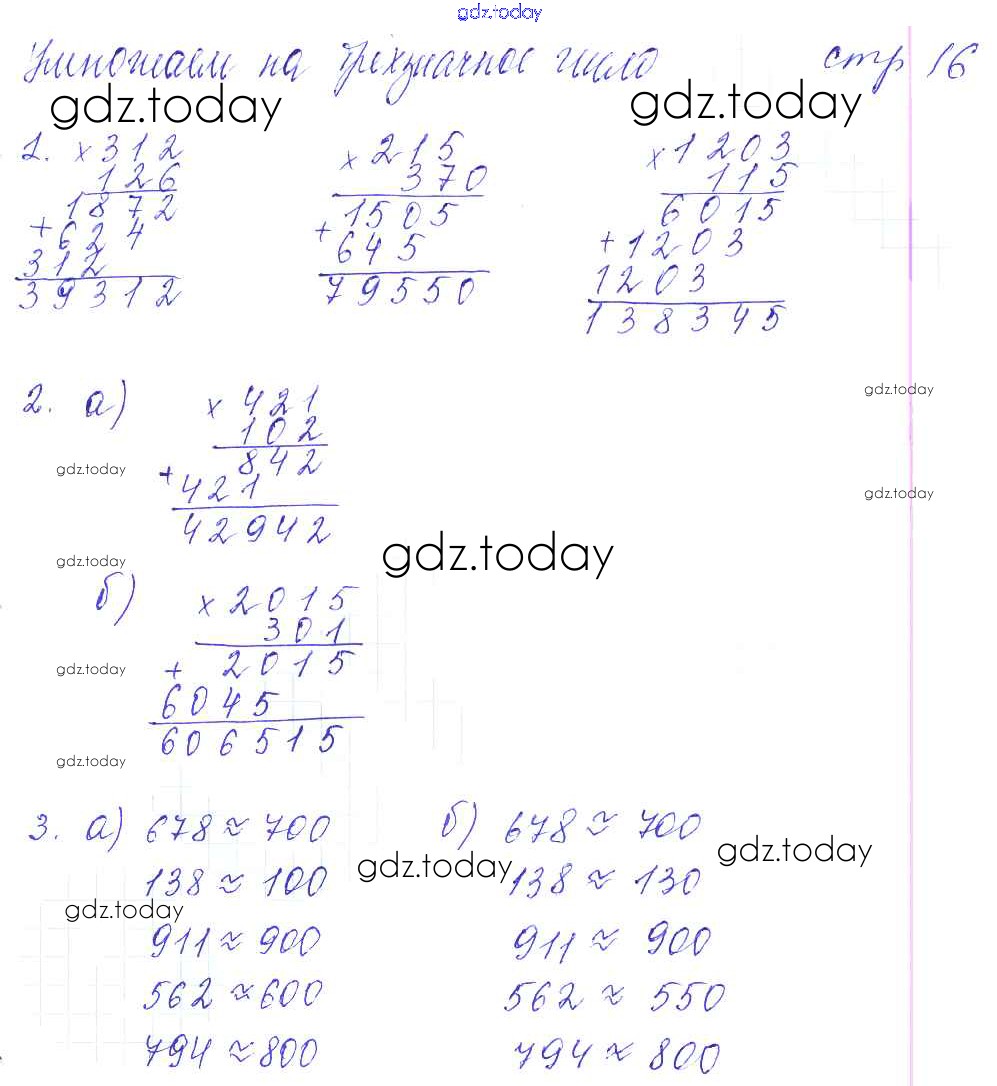 gdz.today
Умножаем на трёхзначное число стр 16
gdz.today gdz.today
1. × 312 × 215 × 1203
126 370 115
1872 1505 6015
+ 624 + 645 + 1203
312 1203
39312 79550 138345
2. а) × 421
gdz.today
102
gdz.today 842
+ 421
gdz.today
42942
gdz.today
gdz.today
б) × 2015
301
gdz.today + 2015
6045
606515
gdz.today
3. а) 678 ≈ 700 б) 678 ≈ 700
gdz.today gdz.today
138 ≈ 100 138 ≈ 130
gdz.today
911 ≈ 900 911 ≈ 900
562 ≈ 600 562 ≈ 550
794 ≈ 800 794 ≈ 800